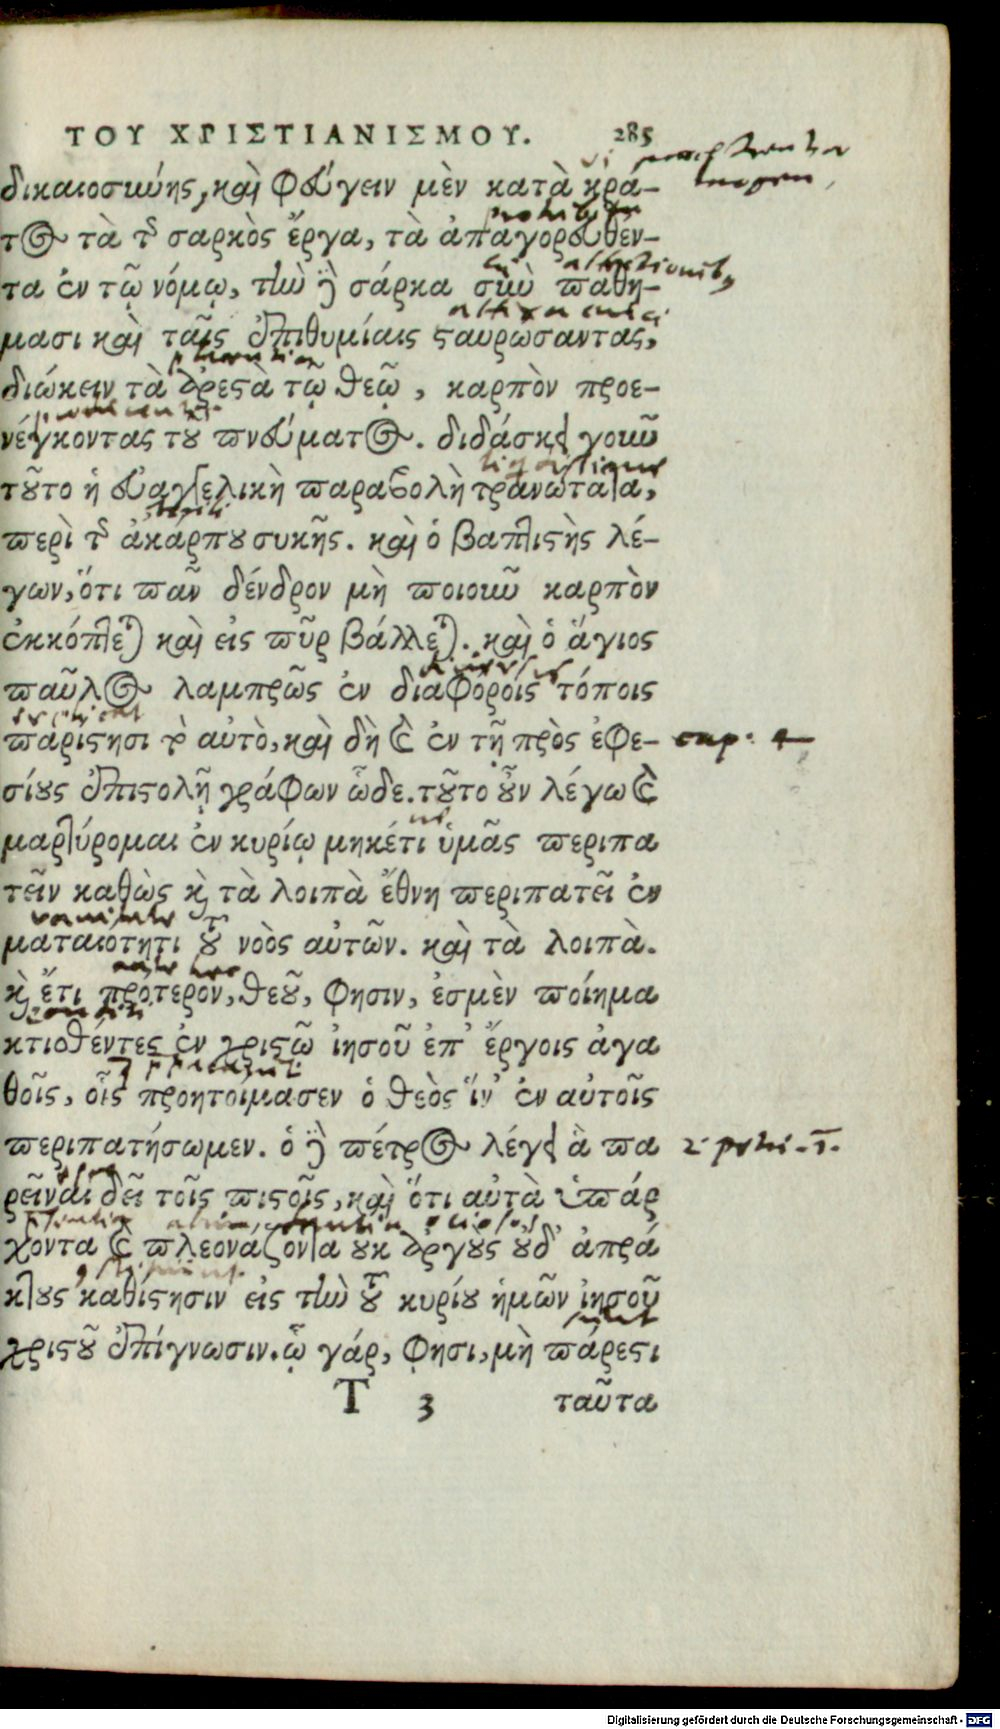 ΤΟΥ ΧΡΙΣΤΙΑΝΙΣΜΟΥ. 285
δικαιοσύνης, καὶ φεύγειν μὲν κατὰ κρά-
τος τὰ τῆς σαρκὸς ἔργα, τὰ ἀπαγορευθέν-
τα ἐν τῷ νόμῳ, τὴν δὲ σάρκα σὺν παθή-
μασι καὶ ταῖς ἐπιθυμίαις σταυρώσαντας,
διώκειν τὰ ἀρεστὰ τῷ θεῷ, καρπὸν προε-
νέγκοντας τοῦ πνεύματος. διδάσκει γοῦν
τοῦτο ἡ εὐαγγελικὴ παραβολὴ τρανώτατα,
περὶ τῆς ἀκάρπου συκῆς. καὶ ὁ βαπτιστὴς λέ-
γων, ὅτι πᾶν δένδρον μὴ ποιοῦν καρπὸν
ἐκκόπτεται καὶ εἰς πῦρ βάλλεται. καὶ ὁ ἅγιος
παῦλος λαμπρῶς ἐν διαφόροις τόποις
παρίστησι τὸ αὐτὸ, καὶ δὴ καὶ ἐν τῇ πρὸς ἐφε- cap: 4
σίους ἐπιστολῇ γράφων ὧδε. τοῦτο οὖν λέγω καὶ
μαρτύρομαι ἐν κυρίῳ μηκέτι ὑμᾶς περιπα
τεῖν καθὼς καὶ τὰ λοιπὰ ἔθνη περιπατεῖ ἐν
ματαιότητι τοῦ νοὸς αὐτῶν. καὶ τὰ λοιπὰ.
καὶ ἔτι πρότερον, θεοῦ, φησιν, ἐσμὲν ποίημα
κτισθέντες ἐν χριστῷ ἰησοῦ ἐπ' ἔργοις ἀγα
θοῖς, οἷς προητοίμασεν ὁ θεὸς ἵν' ἐν αὐτοῖς
περιπατήσωμεν. ὁ δὲ πέτρος λέγει ἃ πα 2 petri. 1.
ρεῖναι δεῖ τοῖς πιστοῖς, καὶ ὅτι αὐτὰ ὑπάρ
χοντα καὶ πλεονάζοντα οὐκ ἀργοὺς οὐδ' ἀπρά
κτους καθίστησιν εἰς τὴν τοῦ κυρίου ἡμῶν ἰησοῦ
χριστοῦ ἐπίγνωσιν. ᾧ γάρ, φησι, μὴ πάρεστι
T 3 ταῦτα
Digitalisierung gefördert durch die Deutsche Forschungsgemeinschaft - DFG